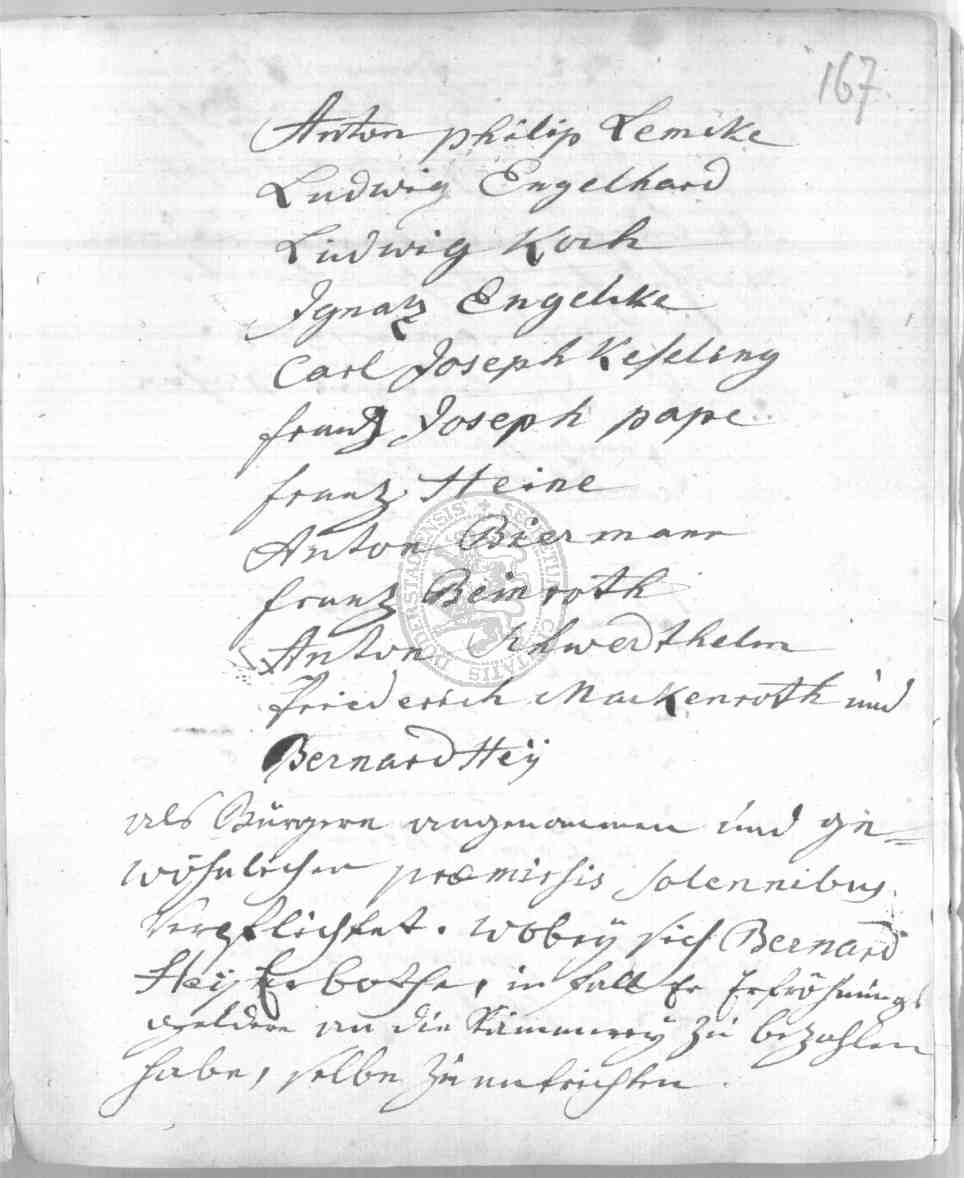 167
Anton philip Lemcke
Ludwig Engelhard
Ludwig Koch
Ignaz Engelcke
Carl Joseph Keseling
frantz Joseph pape
frantz Heine
Anton Biermann
frantz Beinroth
Anton Schwerdthelm
Friederich Mackenroth und
Bernard Heÿ
als Bürgere angenommen und ge=
wöhnlicher præmissis solennibus
Verpflichtet. wobeÿ sich Bernard
Heÿ Erbothe, in fall Er
geldere an die Kämmereÿ zu bezahlen
habe, selbe zu entrichten.
SECRETUM CIVITATIS DUDERSTADENSIS